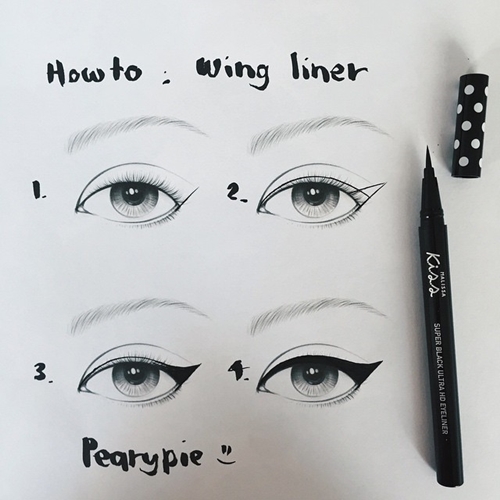 How to : Wing liner
1.
2.
3.
4.
Pearypie
MALISSA
Kiss
SUPER BLACK ULTRA HD EYELINER